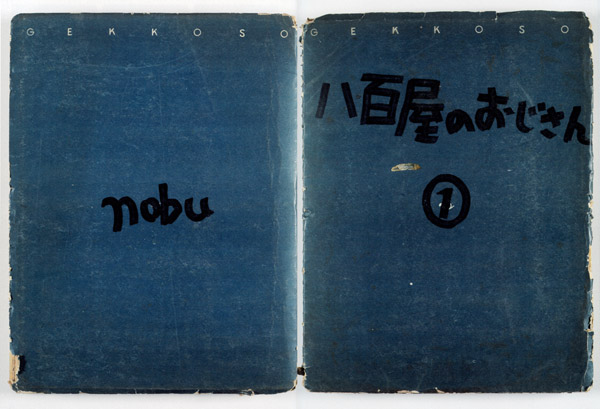 GEKKOSO
nobu
GEKKOSO
八百屋のおじさん
①